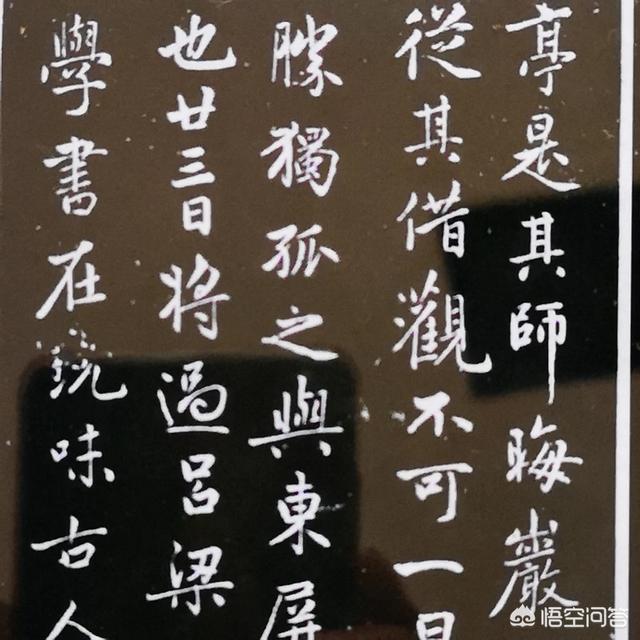 亭是其師晦巖
從其借觀不可一
勝獨孤之與東屏
也廿三日將過呂梁
學書在玩味古人
悟空问答